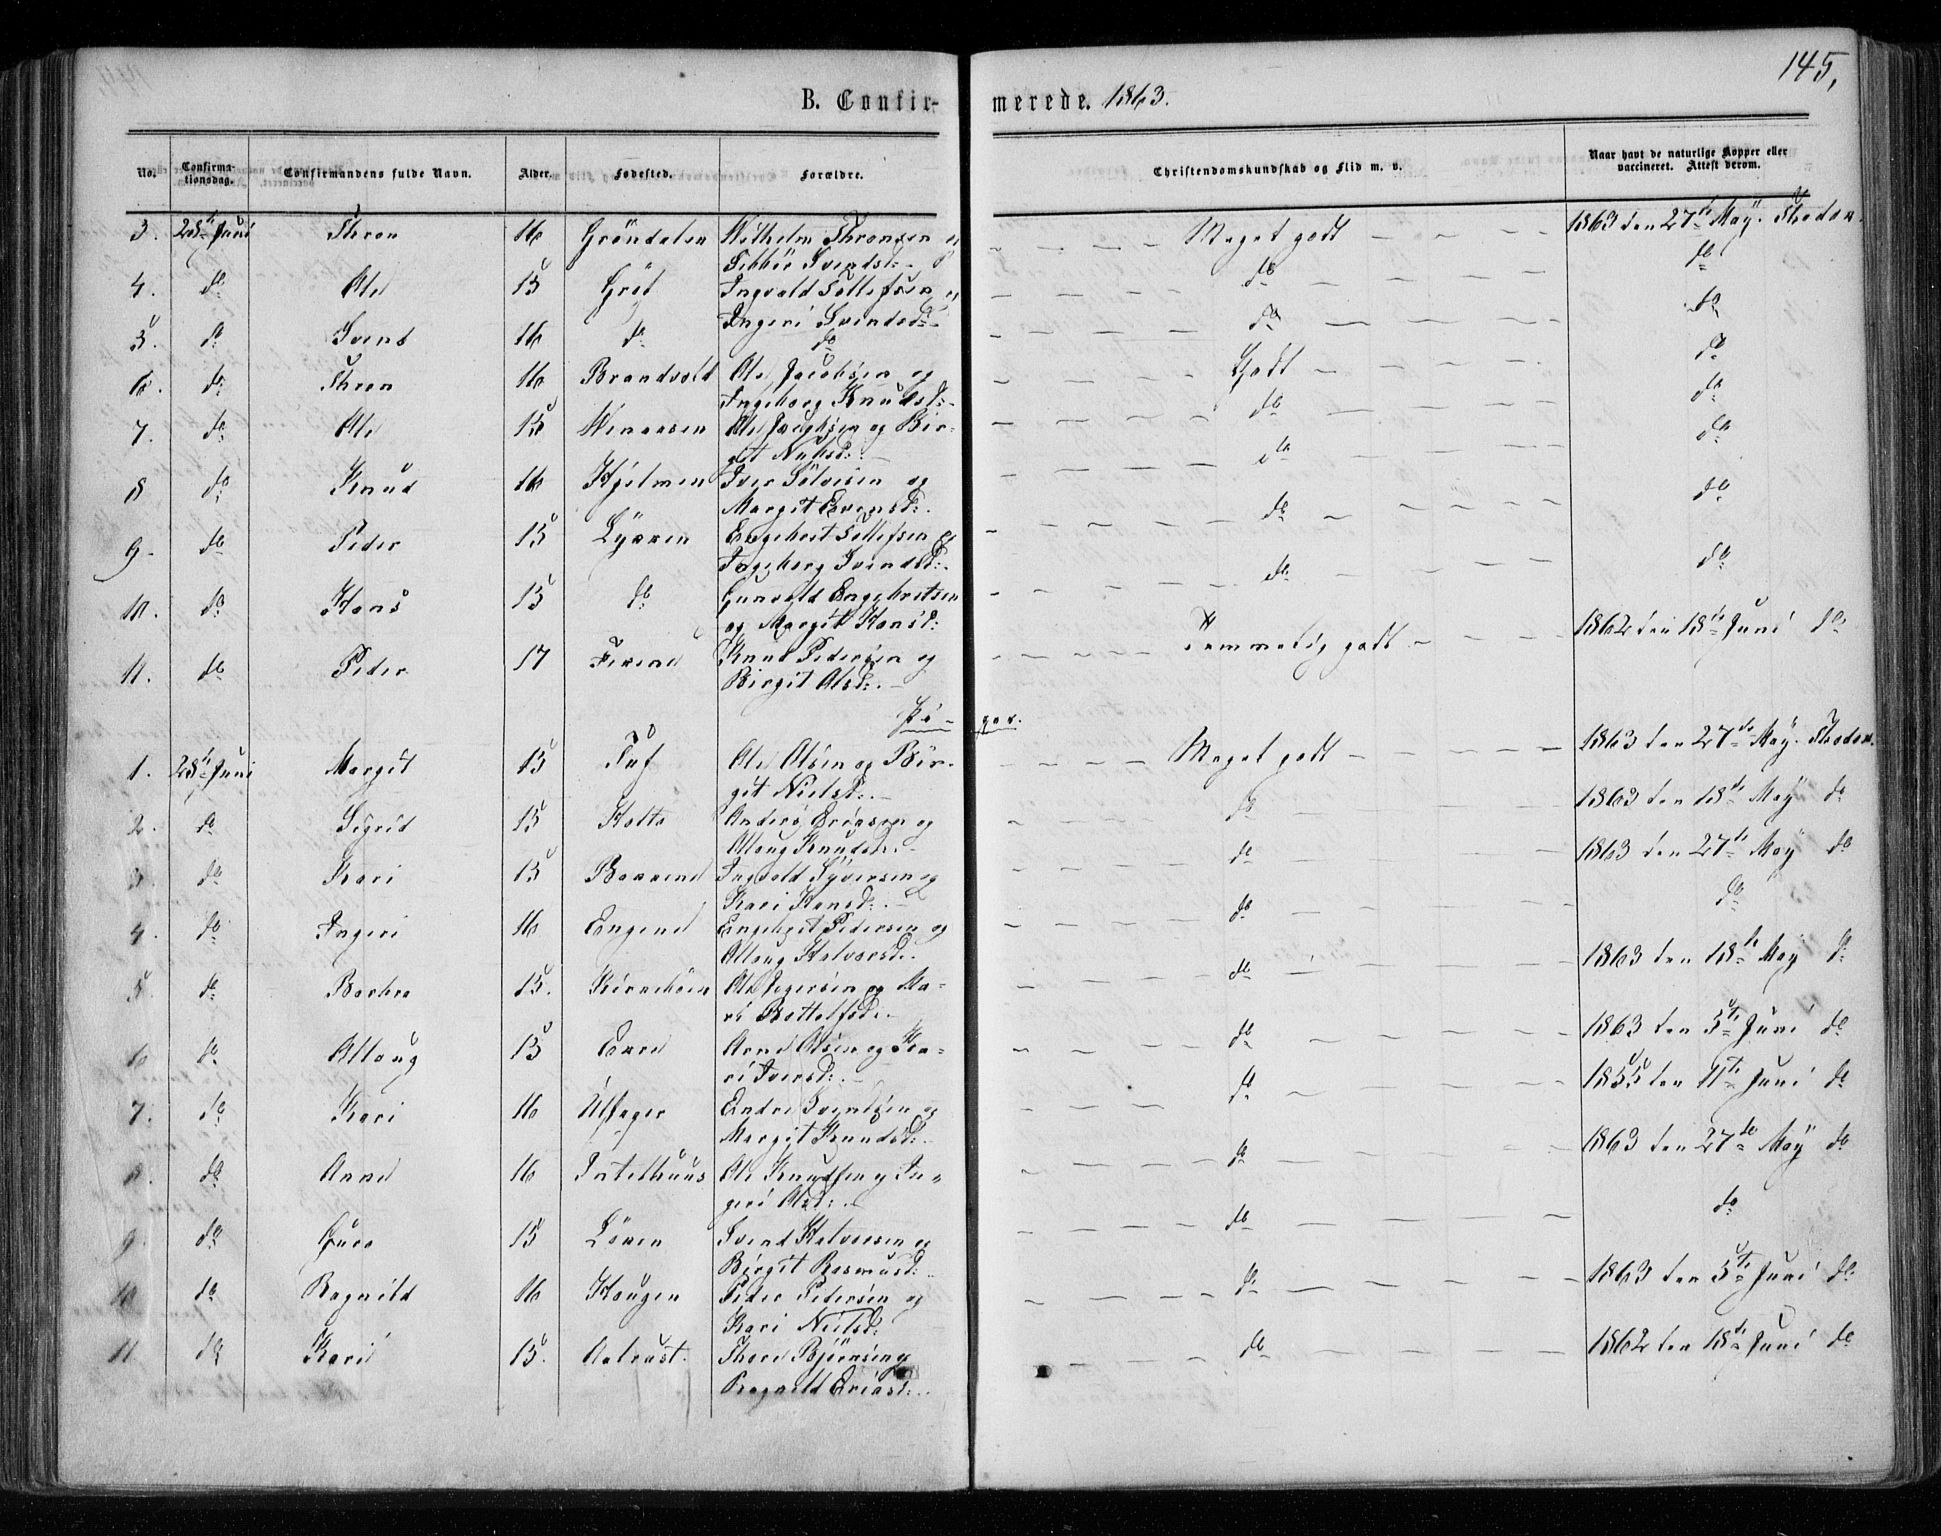 145,
B. Confir- merede. 1863.
No. Confirma-tionsdag. Confirmandens fulde Navn. Alder. Fødested. Forældre. Christendomskundskab og Flid m. v. Naar havt de naturlige Kopper eller vaccineret. Attest derom.
3. 28de Juni Thron 16 Gröndalen Wilhelm Thronsen og Meget godt 1863 den 27de Maÿ.
Svendsd:
4. do Ole 15 Ingvald Tollefsen og do do
Ingeri Svendsd:
5. do Svend 16 do do do do
6. do Thron 16 Brandvold Ole Jacobsen og Godt do
Ingeborg Knudsd:
7. do Ole 15 Ole og Bir-
git do do
8 do Knud 16 Hjelmen Iver og do do
Margit Evensd:
9. do Peder 15 Engebret Tollefsen og do do
Ingeborg Svendsd:
10. do Hans 15 do Gunvald Engebretsen do do
og Margit Hansd:
11. do Peder 17 Knud Pedersen og Temmelig godt 1862 den 18de Juni do
Birgit Olsd:
Pi- ger.
1. 28de Juni Margit 15 Tuf Ole Olsen og Bir- Meget godt 1863 den 27de Maÿ.
git Nielsd:
2. do Sigrid 15 Anders og do 1863 den 18de Maÿ do
Allaug Knudsd:
3. do Kari 15 Ingvald Syversen og do 1863 den 27de Maÿ do
Kari Hansd:
4. do Ingeri 16 Engene Engebret Pedersen og do do
Allaug Halvorsd:
5. do Barbro 15. Ole og Ma- do 1863 den 18de Maÿ do
ri Bottolfsd:
6 do Allaug 15 Arne Olsen og Ka- do 1863 den 5te Juni do
ri Iversd:
7. do Kari 16 Ulsager Endre Svendsen og do 1855 den 11te Juni do
Margit Knudsd:
8. do Anne 16 Ole Knudsen og In- do 1863 den 27de Maÿ do
geri Olsd:
9. do Guro 15 Svend Halvorsen og do do
Birgit Rasmusd:
10 do Ragnild 16 Haugen Peder Pedersen og do 1863 den 5te Juni do
Kari Nielsd:
11 do Kari 15. Thore Björnsen og do 1862 den 18de Juni do
Ragnild